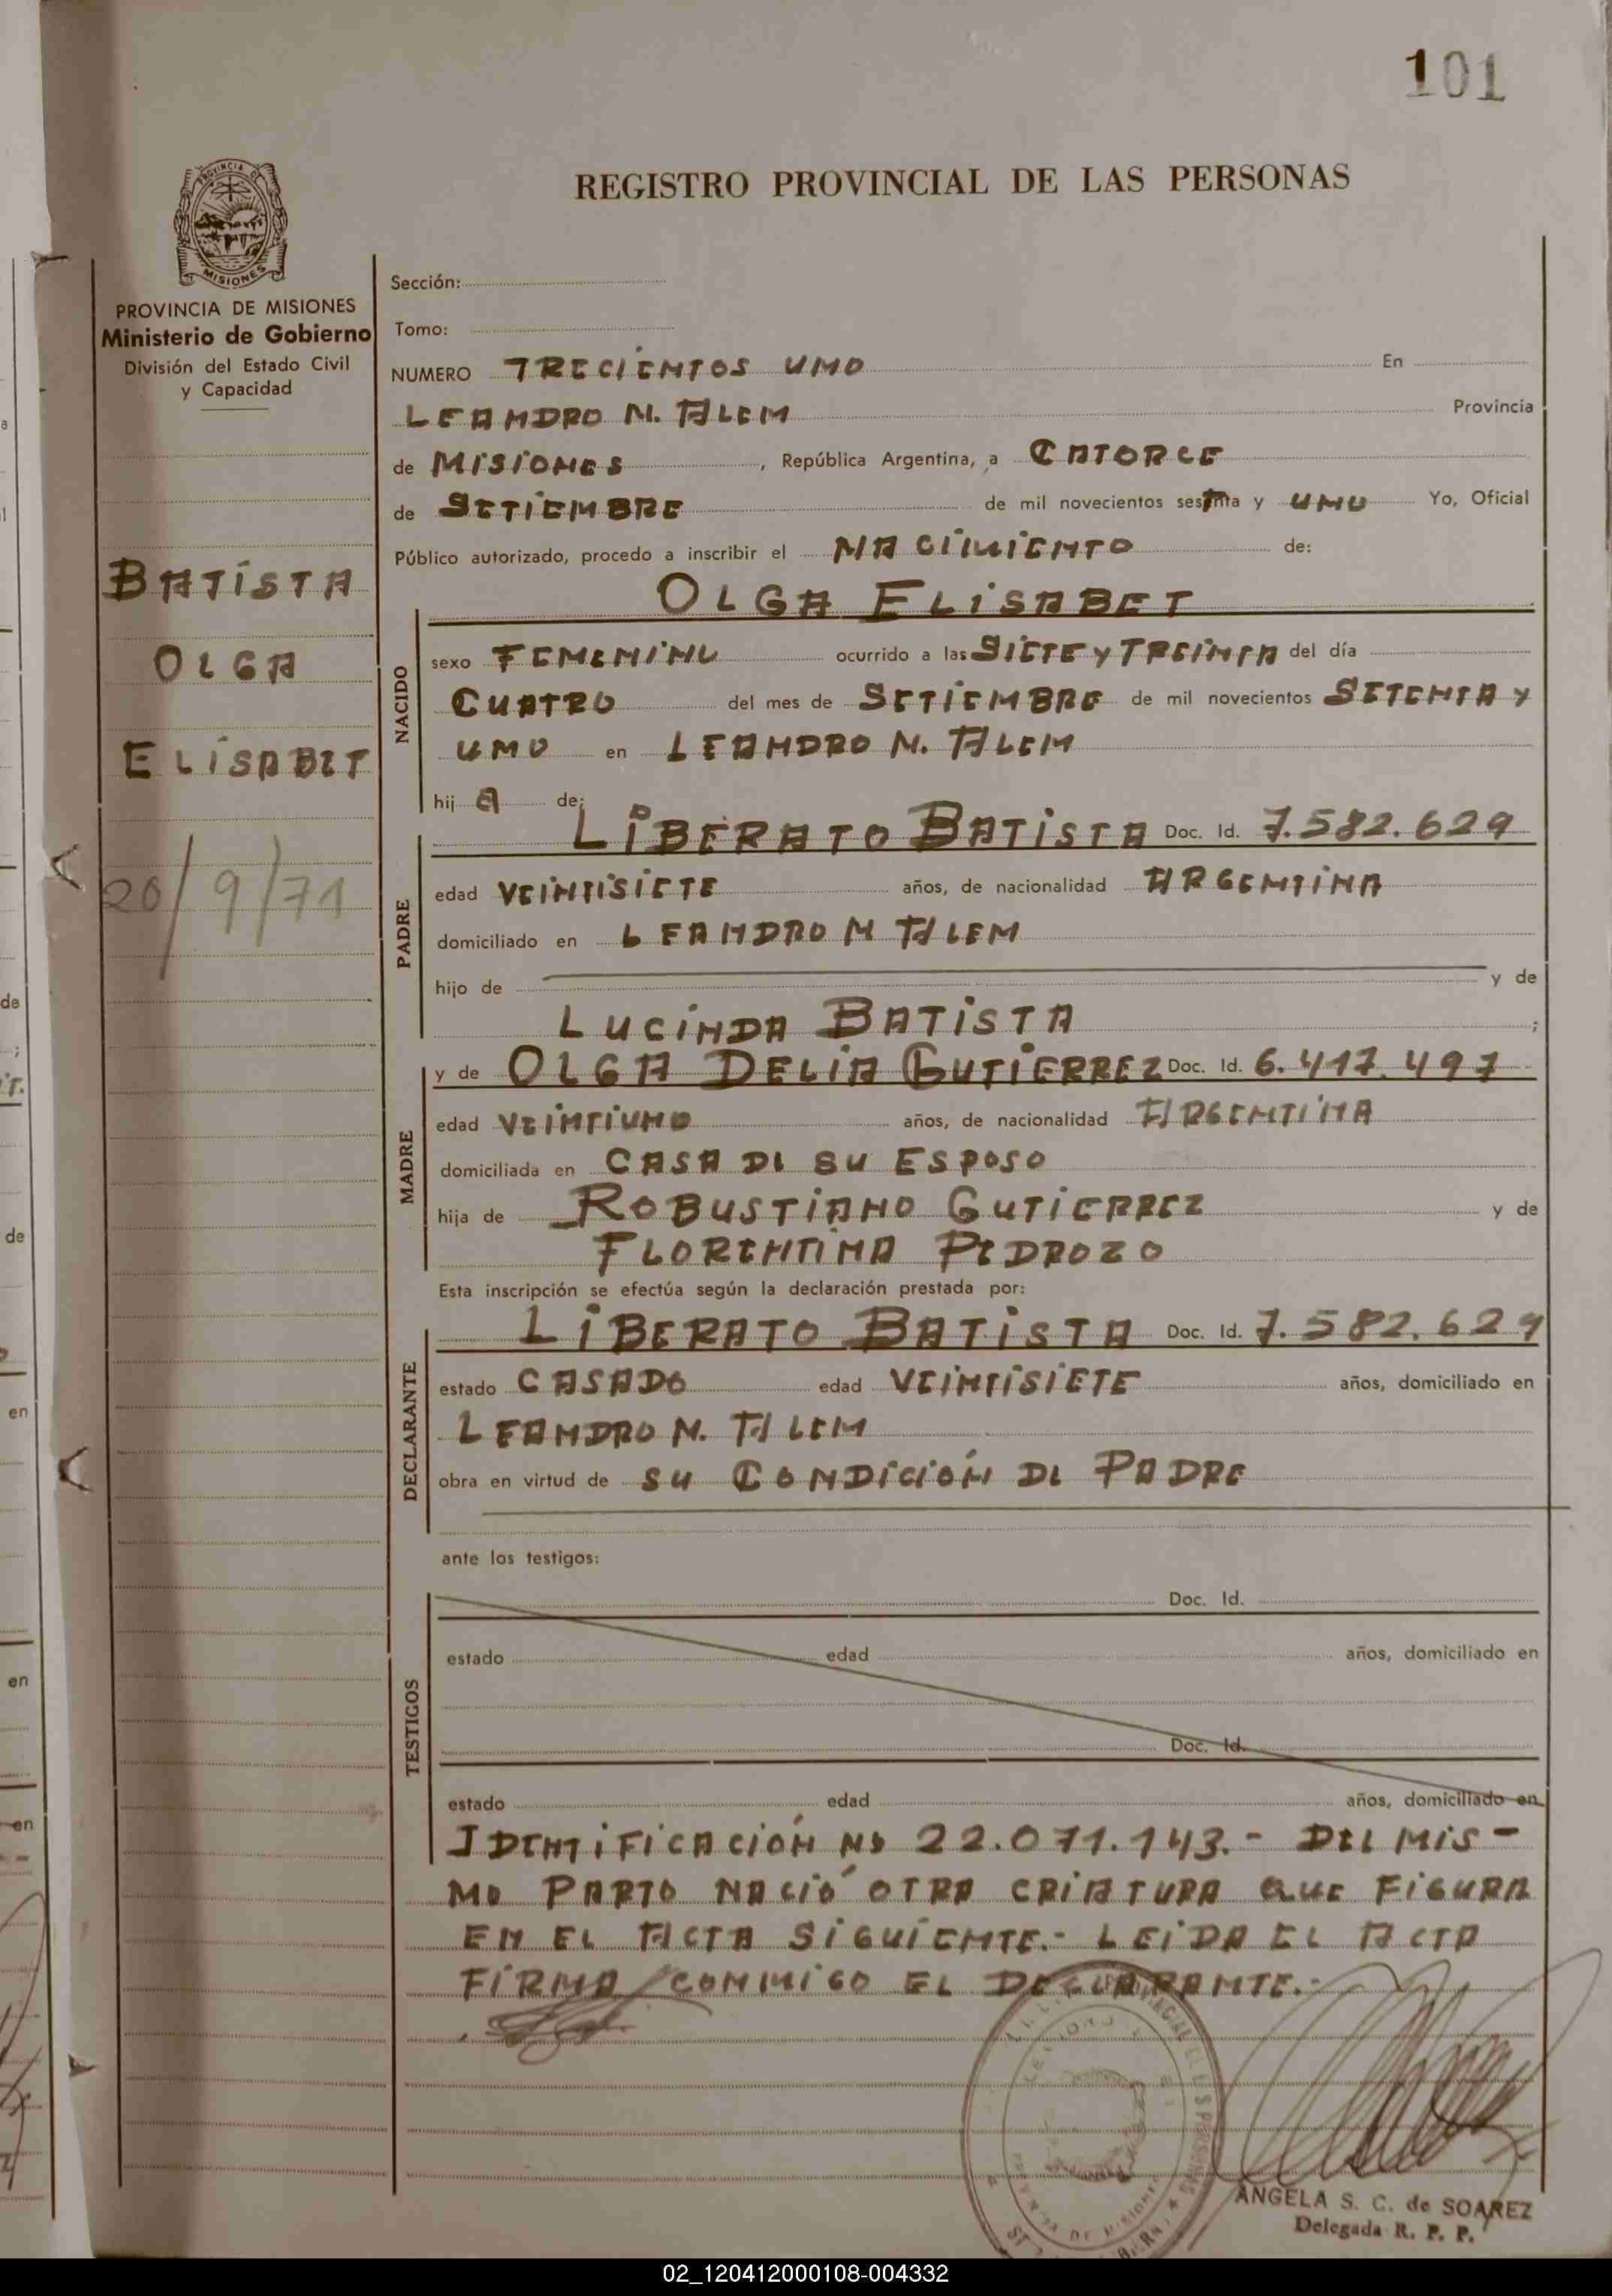 101
REGISTRO PROVINCIAL DE LAS PERSONAS
PROVINCIA DE MISIONES
MISIONES
PROVINCIA DE MISIONES
Ministerio de Gobierno
División del Estado Civil
y Capacidad
BATISTA
OLGA
ELISABET
20/9/71
Sección:
Tomo:
NUMERO TRECIENTOS UNO En
LEANDRO N. ALEM Provincia
de MISIONES, República Argentina, a CATORCE
de SETIEMBRE de mil novecientos sesenta y UNO Yo, Oficial
Público autorizado, procedo a inscribir el NACIMIENTO de:
OLGA ELISABET
NACIDO
sexo FEMENINO ocurrido a las SIETE y TREINTA del día
CUATRO del mes de SETIEMBRE de mil novecientos SETENTA y
UNO en LEANDRO N. ALEM
hij a de:
LIBERATO BATISTA Doc. Id. 7.582.629
PADRE
edad VEINTISIETE años, de nacionalidad ARGENTINA
domiciliado en LEANDRO N ALEM
hijo de y de
LUCINDA BATISTA ;
y de OLGA DELIA GUTIERREZ Doc. Id. 6.417.497
MADRE
edad VEINTIUNO años, de nacionalidad ARGENTINA
domiciliada en CASA DE SU ESPOSO
hija de ROBUSTIANO GUTIERREZ y de
FLORENTINA PEDROZO
Esta inscripción se efectúa según la declaración prestada por:
LIBERATO BATISTA Doc. Id. 7.582.629
DECLARANTE
estado CASADO edad VEINTISIETE años, domiciliado en
LEANDRO N. ALEM
obra en virtud de SU CONDICIÓN DE PADRE
ante los testigos:
TESTIGOS
Doc. Id.
estado edad años, domiciliado en
Doc. Id.
estado edad años, domiciliado en
IDENTIFICACIÓN No 22.071.143.- DEL MIS-
MO PARTO NACIÓ OTRA CRIATURA QUE FIGURA
EN EL ACTA SIGUIENTE.- LEIDA EL ACTA
FIRMA CONMIGO EL DECLARANTE.-
ANGELA S. C. de SOAREZ
Delegada R. P. P.
02_120412000108-004332